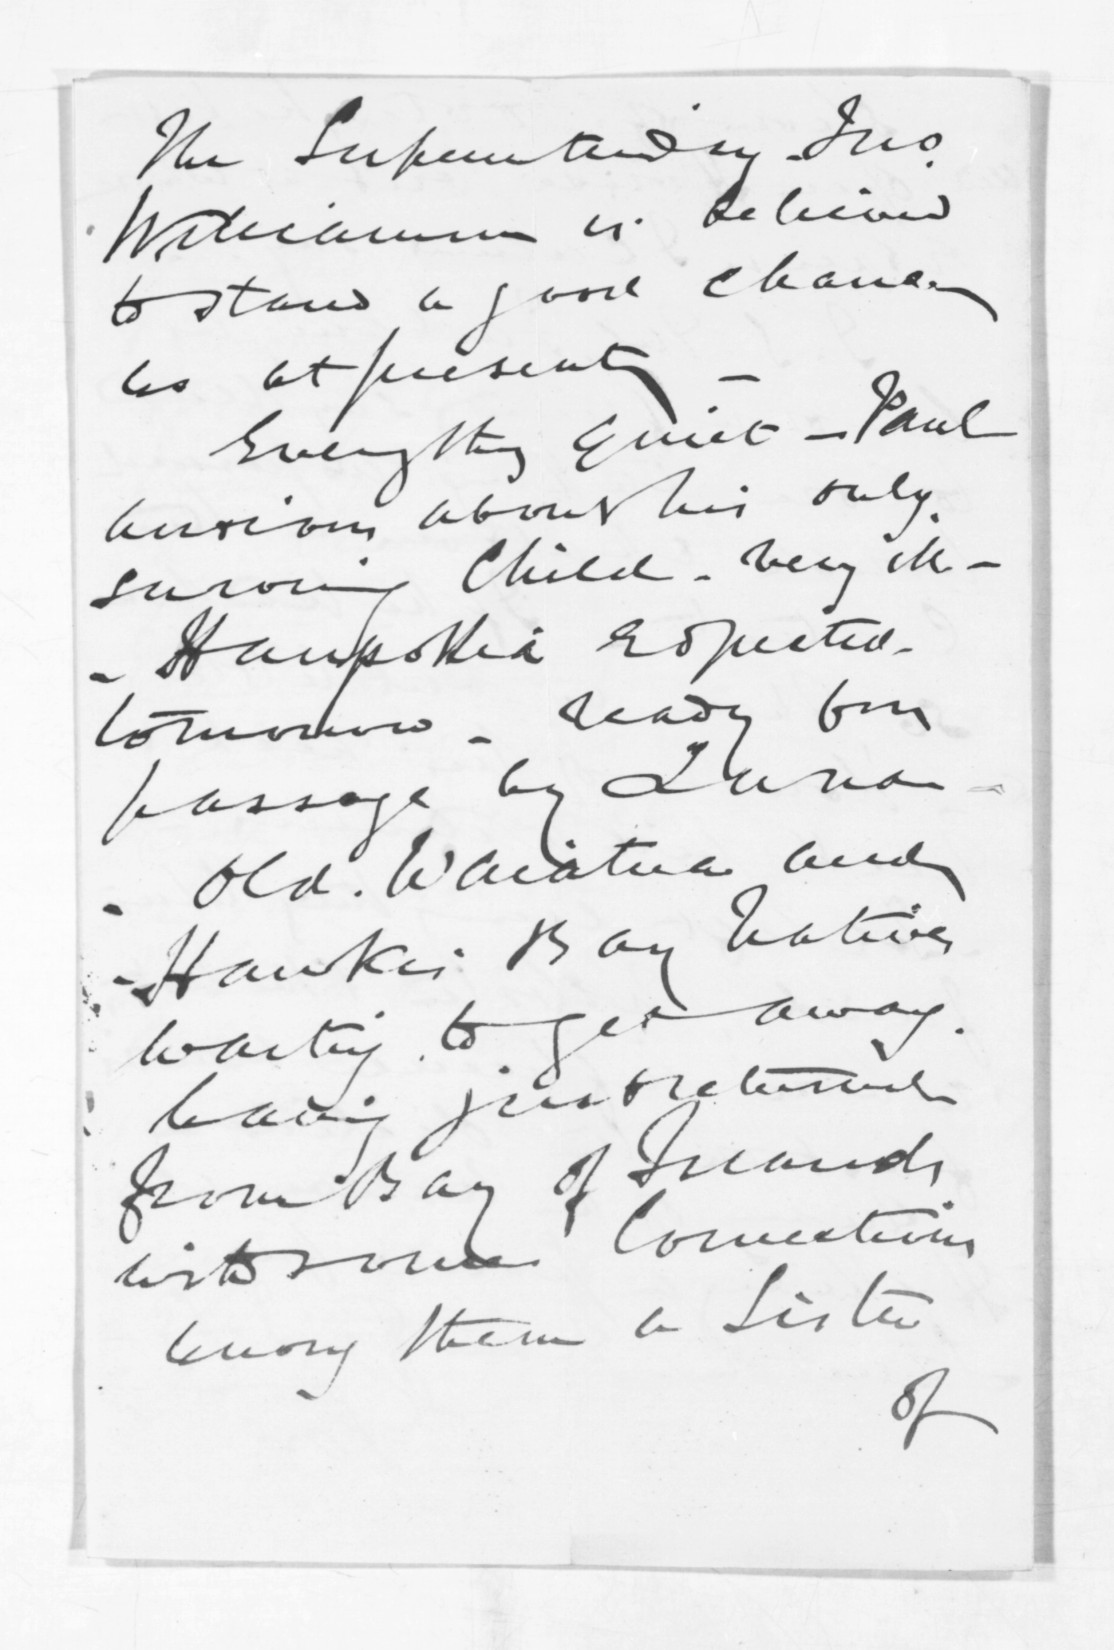 The Superintendicy - Jno.
Williamson is believed
to stand a good chance
as at present, -
Everything quiet - Paul
anxious about his only
surviving Child - very ill -
- Haupokia expected
tomorrow - ready for
passage by Luna -
- Old. Waiatua and
- Hawkes Bay Natives
wanting to get away.
having just returned
from Bay of Islands
with some Connections
among them a Sister
of